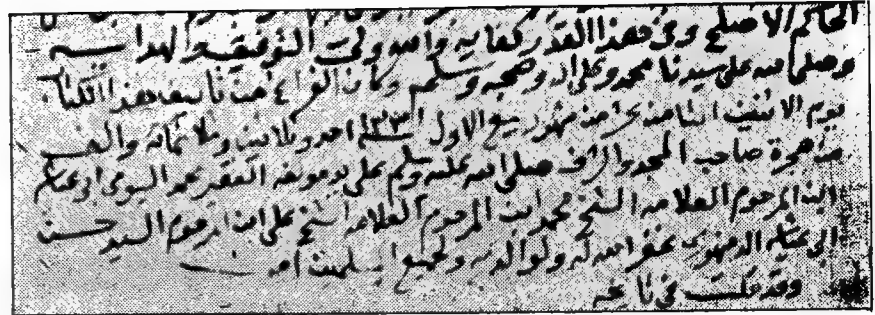 الحاكم الاصلح وفى هذا القدر كفاية والله ولى التوفيق والهداية
وصلى الله على سيدنا محمد وعلى آله وصحبه وسلم وكان الفراغ من تأليف هذا الكتاب
يوم الاثنين الثامن عشر من شهر ربيع الاول ١٣٣١ احد وثلاثين وثلاثمائة والف
من هجرة صاحب المجد والشرف صلى الله عليه وسلم على يد مؤلفه الفقير محمد البسيونى
ابن المرحوم العلامه الشيخ محمد ابن المرحوم العلامه الشيخ على ابن المرحوم السيد حسن
الدمنهورى غفر الله له ولوالديه ولجميع المسلمين امين
وقد قلت فى تاريخه